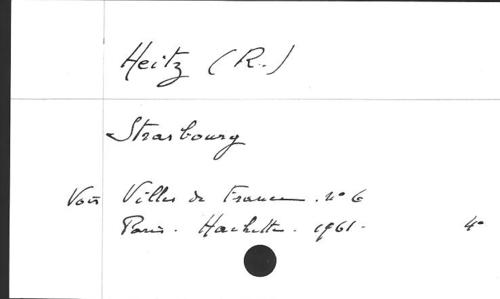 Heitz (R.)
Strasbourg
Voir Villes de France. n° 6
Paris. Hachette. 1961. 4°